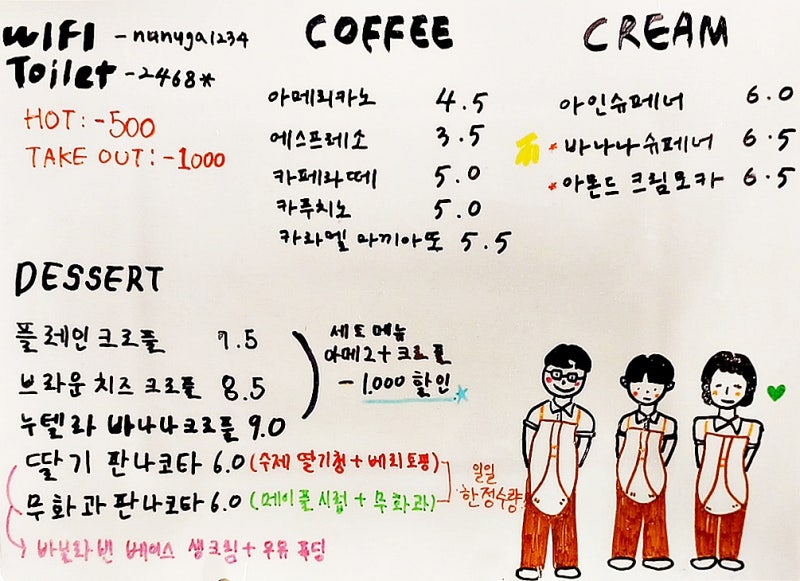 WIFI - nunuga1234
Toilet - 2468*
HOT: -500
TAKE OUT: -1000
COFFEE
아메리카노 4.5
에스프레소 3.5
카페라떼 5.0
카푸치노 5.0
카라멜 마끼아또 5.5
CREAM
아인슈페너 6.0
* 바나나슈페너 6.5
* 아몬드 크림모카 6.5
DESSERT
플레인 크로플 7.5
브라운 치즈 크로플 8.5
누텔라 바나나크로플 9.0
세트메뉴
아메2+크로플
- 1.000 할인
딸기 판나코타 6.0 (수제 딸기청 + 베리토핑)
무화과판나코타 6.0 (메이플시럽 + 무화과)
일일
한정수량
바닐라빈 베이스 생크림 + 우유 푸딩